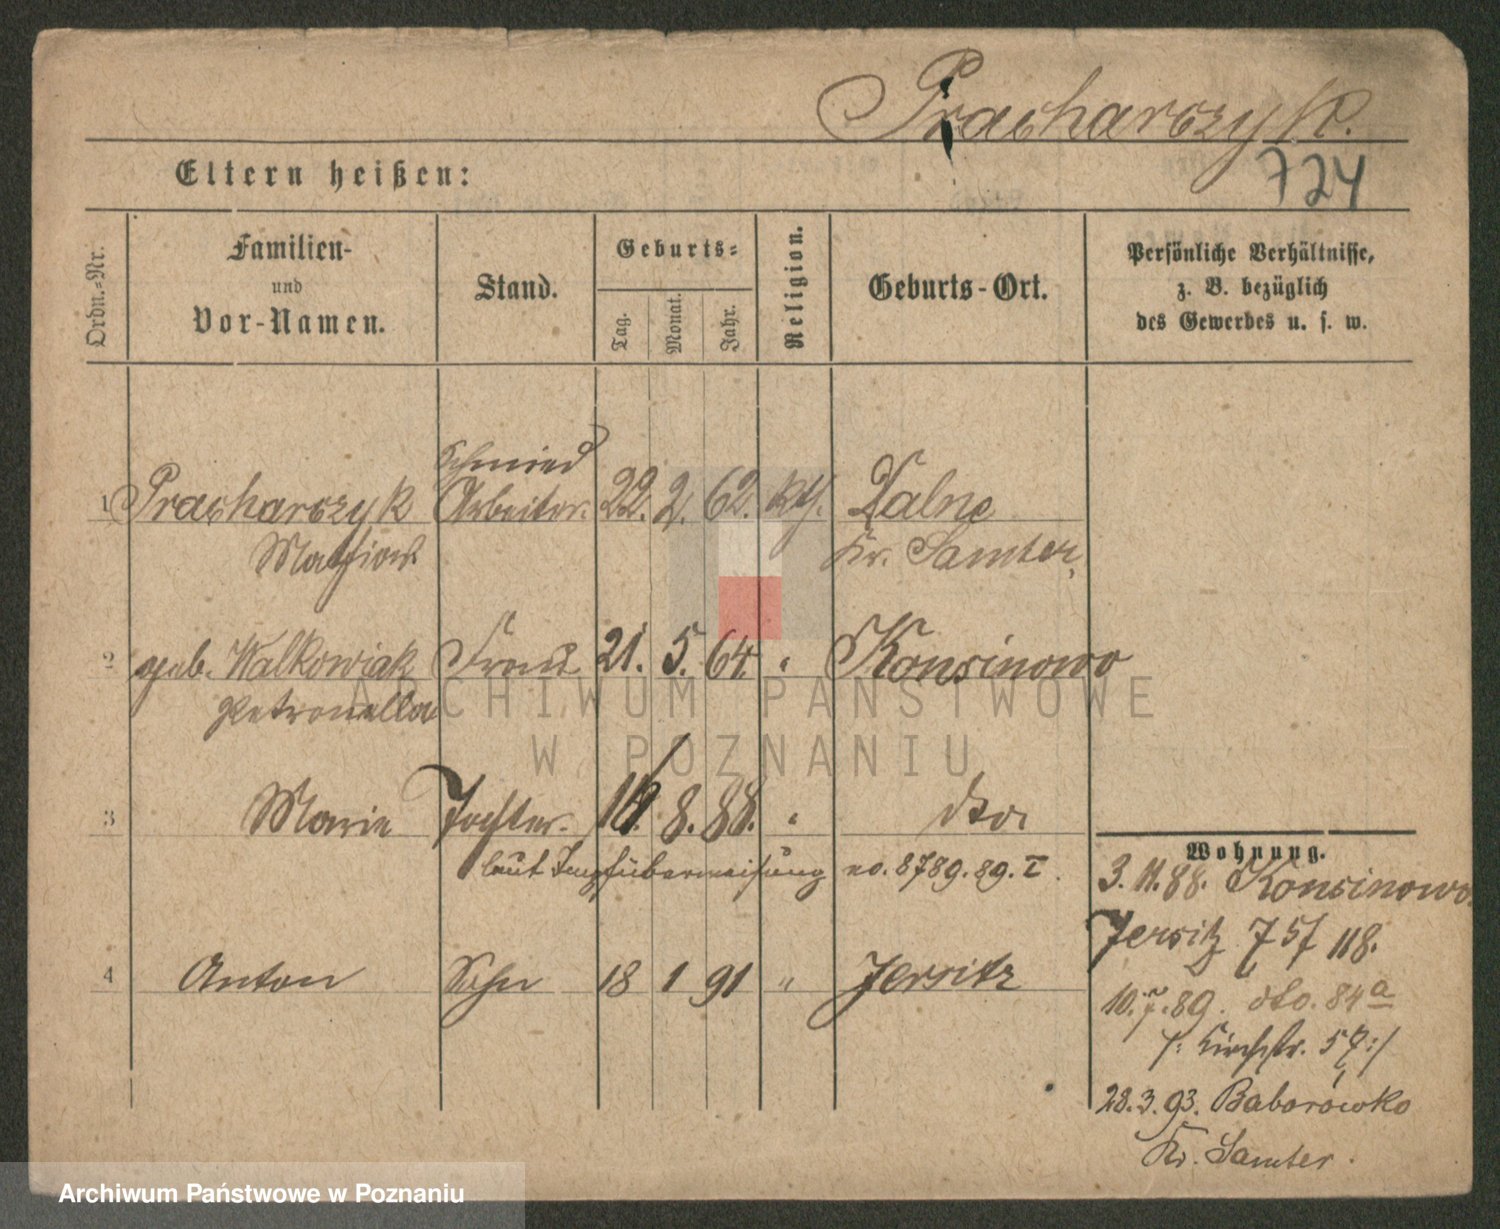 Pracharczyk.
724
Eltern heißen:
Ordn.-Nr.
Familien-
und
Vor-Namen.
Stand.
Geburts-
Tag.
Monat.
Jahr.
Religion.
Geburts-Ort.
Persönliche Verhältnisse,
z. B. bezüglich
des Gewerbes u. s. w.
Schmied
1 Pracharczyk Arbeiter. 22. 2. 62. kth. Dalne
Kr. Samter.
2 geb. Walkowiak Frau 21. 5. 64. " Konsinowo
Petronella
ARCHIWUM PAŃSTWOWE
W POZNANIU
3 Marie Tochter. 8. 88. " dto
laut Impfüberweisung no. 8789. 89. I.
4 Anton Sohn 18 1 91 " Jersitz
Wohnung.
3. 11. 88. Konsinowo.
Jersitz 118.
10. 7. 89. dto. 84a
/: Kirchstr. 57 :/
28. 3. 93. Baborówko
Kr. Samter.
Archiwum Państwowe w Poznaniu